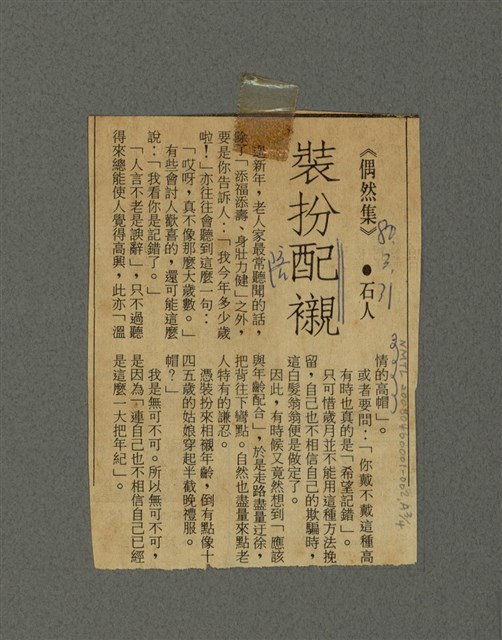 《偶然集》 ●石人
80.3.31
裝扮配襯
陪
新年,老人家最常聽聞的話,
除了「添福添壽、身壯力健」之外,
要是你告訴人:「我今年多少歲
啦!」亦往往會聽到這麼一句:
「哎呀,真不像那麼大歲數。」
有些會討人歡喜的,還可能這麼
說:「我看你是記錯了。」
「人言不老是諛辭」,只不過聽
得來總能使人覺得高興,此亦「溫
情的高帽」。
或者要問:「你戴不戴這種高
有時也真的是「希望記錯」。
只可惜歲月並不能用這種方法挽
留,自己也不相信自己的欺騙時,
這白髮翁翁便是做定了。
因此,有時候又竟然想到「應該
與年齡配合」,於是走路盡量迂徐,
把背往下彎點。自然也盡量來點老
人特有的謙忍。
憑裝扮來相襯年齡,倒有點像十
四五歲的姑娘穿起半截晚禮服。
帽?」
我是無可不可。所以無可不可,
是因為「連自己也不相信自己已經
是這麼一大把年紀」。